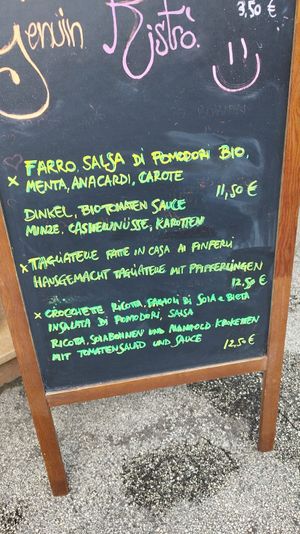 3,50 €
Genuin Bistrò.
FARRO, SALSA DI POMODORI BIO,
MENTA, ANACARDI, CAROTE
11,50 €
DINKEL, BIOTOMATEN SAUCE
MINZE, CASHEWNÜSSE, KAROTTEN
TAGLIATELLE FATTE IN CASA AI FINFERLI
HAUSGEMACHT TAGLIATELLE MIT PFIFFERLINGEN
12,50 €
CROCCHETTE RICOTTA, FAGIOLI DI SOIA E BIETA
INSALATA DI POMODORI, SALSA
RICOTTA, SOIABOHNEN UND MANGOLD KROKETTEN
MIT TOMATENSALAD UND SAUCE
12,50 €